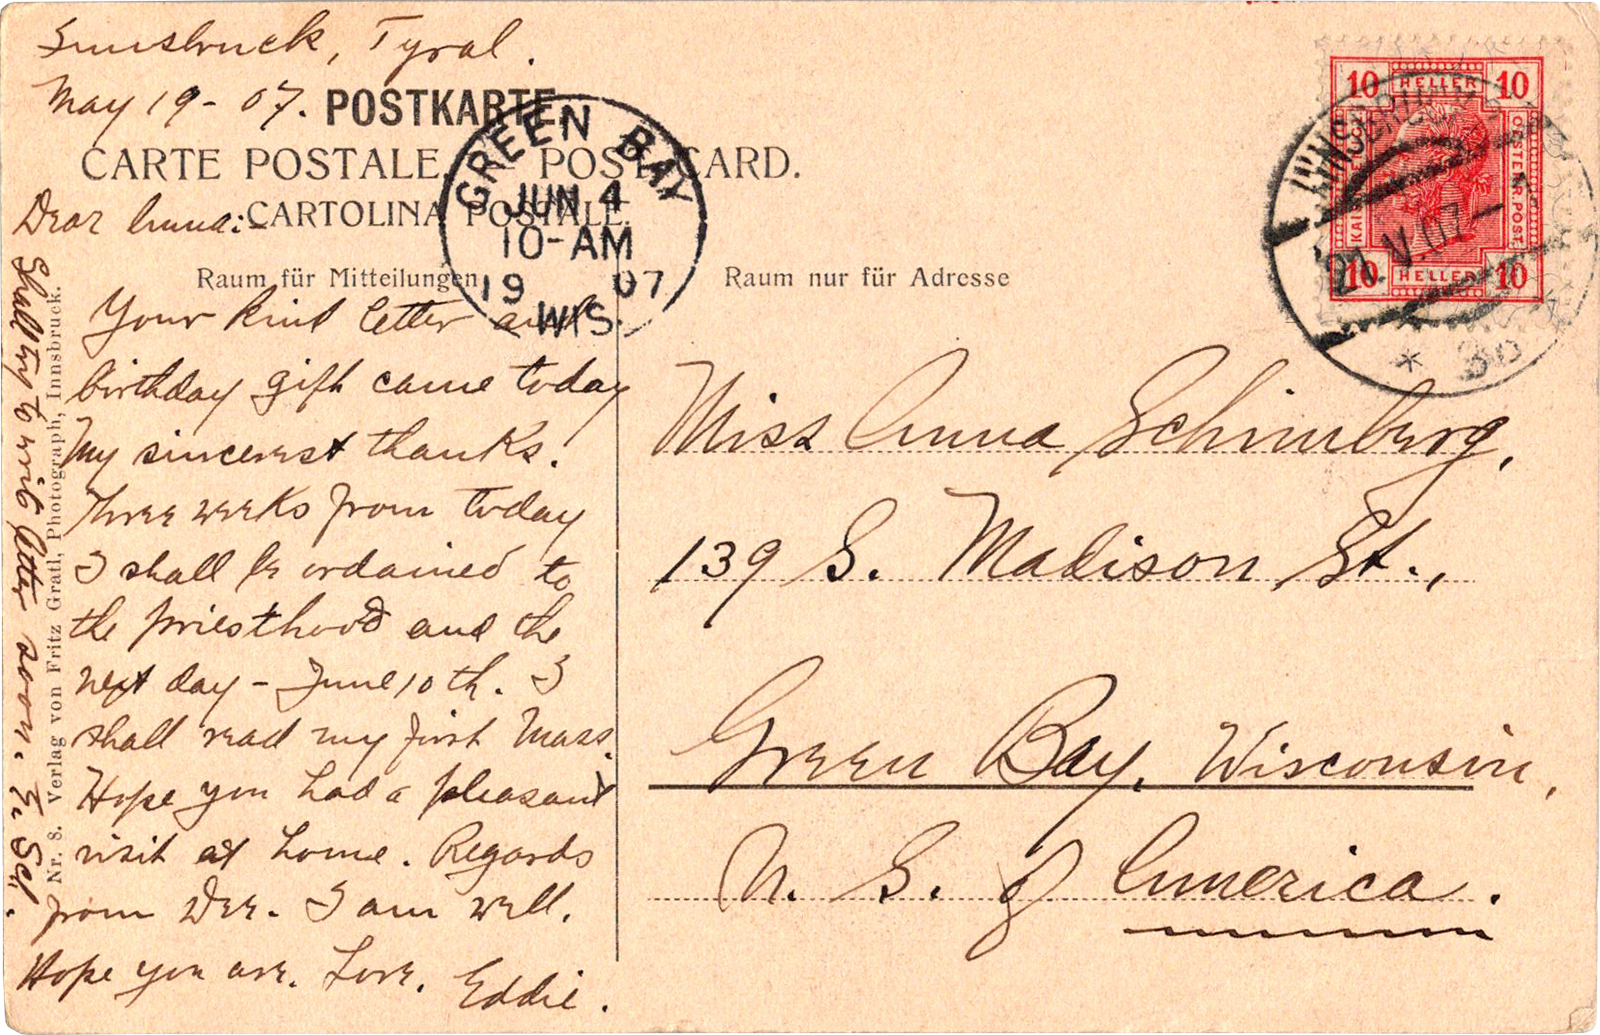 Innsbruck, Tyrol.
May 19 - 07.
POSTKARTE
CARTE POSTALE. POST CARD.
CARTOLINA POSTALE.
Raum für Mitteilungen
Raum nur für Adresse
Dear Anna:-
Your kind letter and
birthday gift came today
My sincerest thanks.
Three weeks from today
I shall be ordained to
the priesthood and the
next day - June 10th. I
shall read my first Mass.
Hope you had a pleasant
visit at home. Regards
from Dee. I am well.
Hope you are. Love. Eddie.
Shall try to write letter soon. E. Sch.
Nr. 8. Verlag von Fritz Gratl, Photograph, Innsbruck.
GREEN BAY
JUN 4
10-AM
19 07
WIS.
10 HELLER 10
KAIS
OESTERR. POST
10 HELLER 10
21.V.07
* 3b
Miss Anna Schimberg,
139 S. Madison St.,
Green Bay, Wisconsin,
U. S. of America.